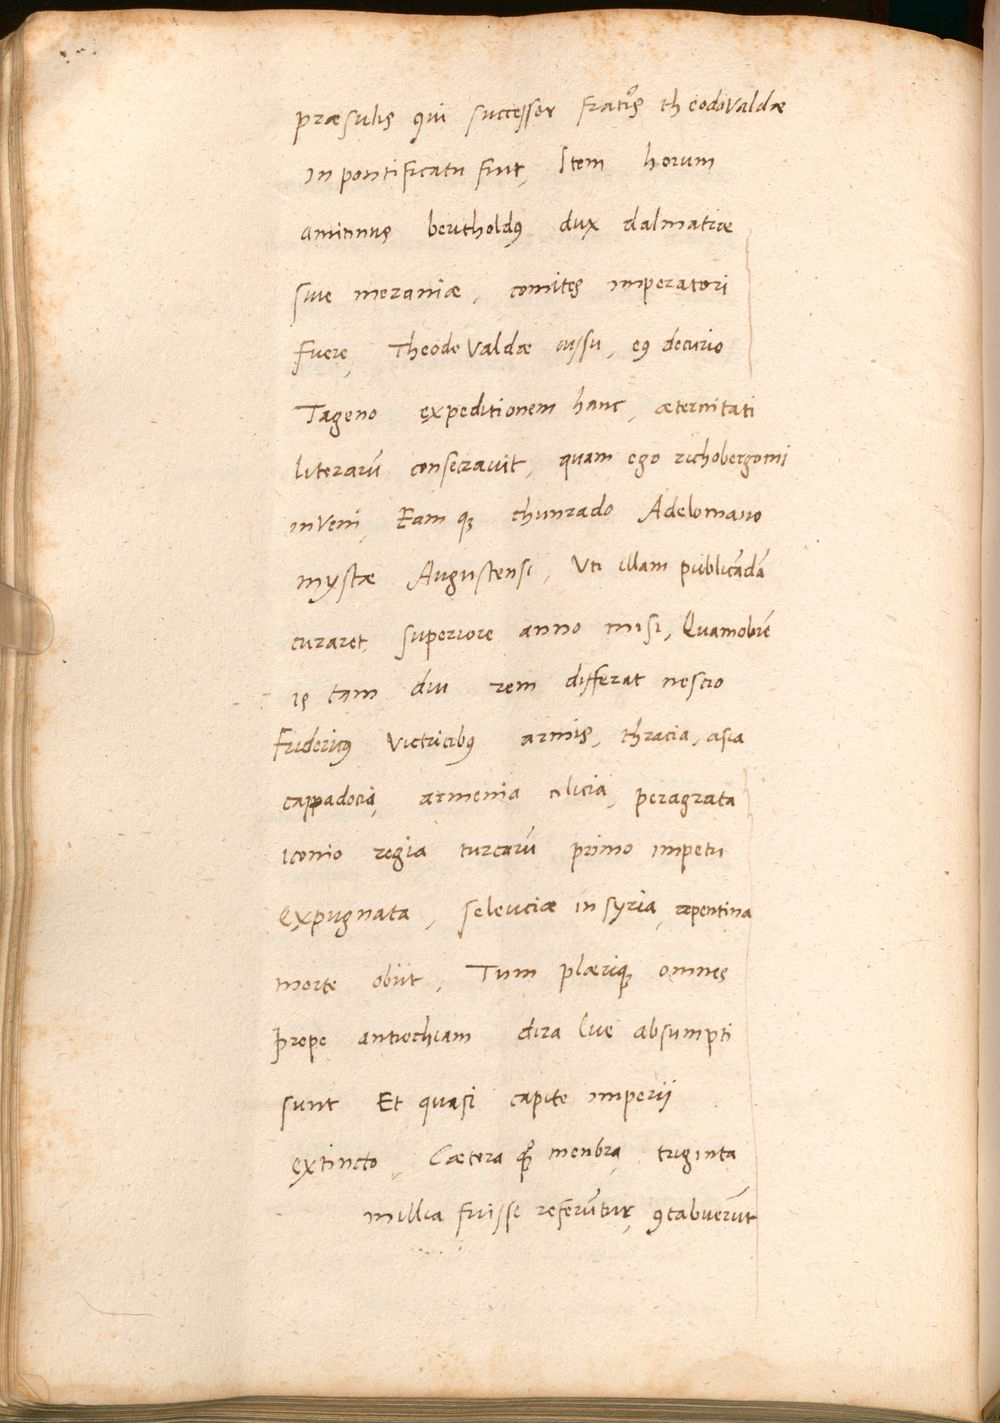 præsulis qui successor fratris theodoValdæ
in pontificatu fuit, Item horum
amitinus bertholdꝰ dux dalmatiæ
siue meraniæ, comites imperatori
fuere, TheodoValdæ iussu, eꝰ decurio
Tageno expeditionem hanc, æternitati
literarū consecrauit, quam ego richobergomi
inVeni, Eam qꝫ chunrado Adelomano
mystæ Augustensi, Vti illam publicādā
curaret, superiore anno misi, Quamobrē
is tam diu rem differat nescio
Fridericꝰ Victricibꝰ armis, thracia, asia
cappadocia, armenia cilicia, peragrata
iconio regia turcarū primo impetu
expugnata, seleuciæ in syria, repentina
morte obiit, Tum plæriqꝫ omnes
prope antiochiam dira lue absumpti
sunt Et quasi capite imperii
extincto, Cætera menbra, triginta
millia fuisse referūtur, ꝯtabuerūt